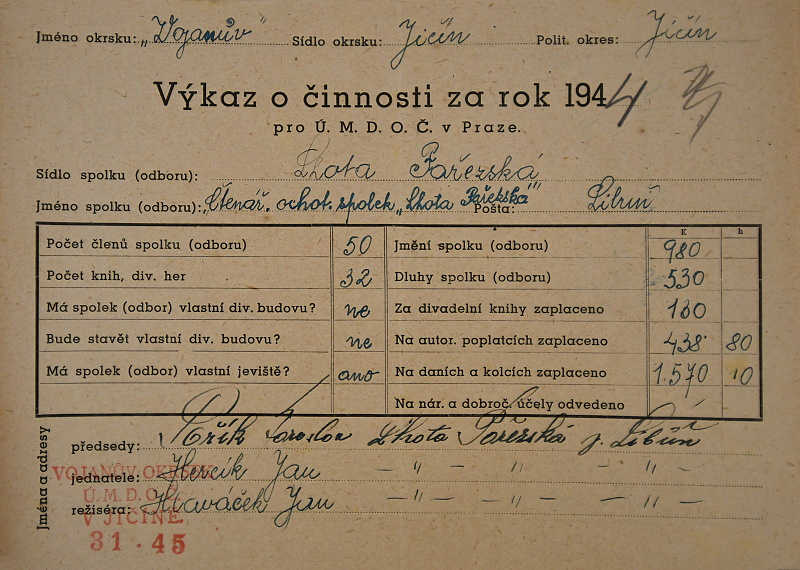 Jméno okrsku: „Vojanův" Sídlo okrsku: Jičín Polit. okres: Jičín
Výkaz o činnosti za rok 1944
pro Ú. M. D. O. Č. v Praze.
Sídlo spolku (odboru): Lhota Pařezská
Jméno spolku (odboru): „Čtenář. ochot. spolek „Lhota Pařezská"" Pošta: Libuň
K h
Počet členů spolku (odboru) 50 Jmění spolku (odboru) 980
Počet knih, div. her 32 Dluhy spolku (odboru) 530
Má spolek (odbor) vlastní div. budovu? ne Za divadelní knihy zaplaceno 130
Bude stavět vlastní div. budovu? ne Na autor. poplatcích zaplaceno 438 80
Má spolek (odbor) vlastní jeviště? ano Na daních a kolcích zaplaceno 1.570 10
Na nár. a dobroč. účely odvedeno
Jména a adresy
předsedy: Jaroslav Lhota Pařezská p. Libuň
jednatele: Hercík Jan — " — — " — — " —
režiséra: Hlaváček Jan — " — " — " —
VOJANŮV OKRSEK
Ú. M. D. O. Č.
V JIČÍNĚ.
31 · 45